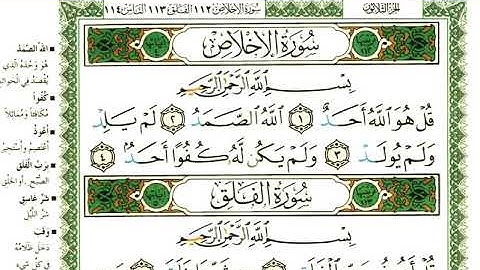 سورة الإخلاص ١١٢ الفلق ١١٣ الناس ١١٤
الجزء الثلاثون
سُورَةُ الإِخْلَاصِ
بِسْمِ ٱللَّهِ ٱلرَّحْمَٰنِ ٱلرَّحِيمِ
قُلْ هُوَ ٱللَّهُ أَحَدٌ ١ ٱللَّهُ ٱلصَّمَدُ ٢ لَمْ يَلِدْ
وَلَمْ يُولَدْ ٣ وَلَمْ يَكُن لَّهُ كُفُوًا أَحَدٌ ٤
سُورَةُ الفَلَقِ
بِسْمِ ٱللَّهِ ٱلرَّحْمَٰنِ ٱلرَّحِيمِ
اللهُ الصَّمَدُ
هُوَ وَحْدَهُ الَّذِي
يُقْصَدُ فِي الْحَوَائِجِ
كُفُوًا
مُكَافِئًا وَمُمَاثِلًا
أَعُوذُ
أَعْتَصِمُ وَأَسْتَجِيرُ
بِرَبِّ الْفَلَقِ
الصُّبْحِ، أَوِ الْخَلْقِ
شَرِّ غَاسِقٍ
شَرِّ اللَّيْلِ
وَقَبَ
دَخَلَ ظَلَامُهُ
فِي كُلِّ شَيْءٍ